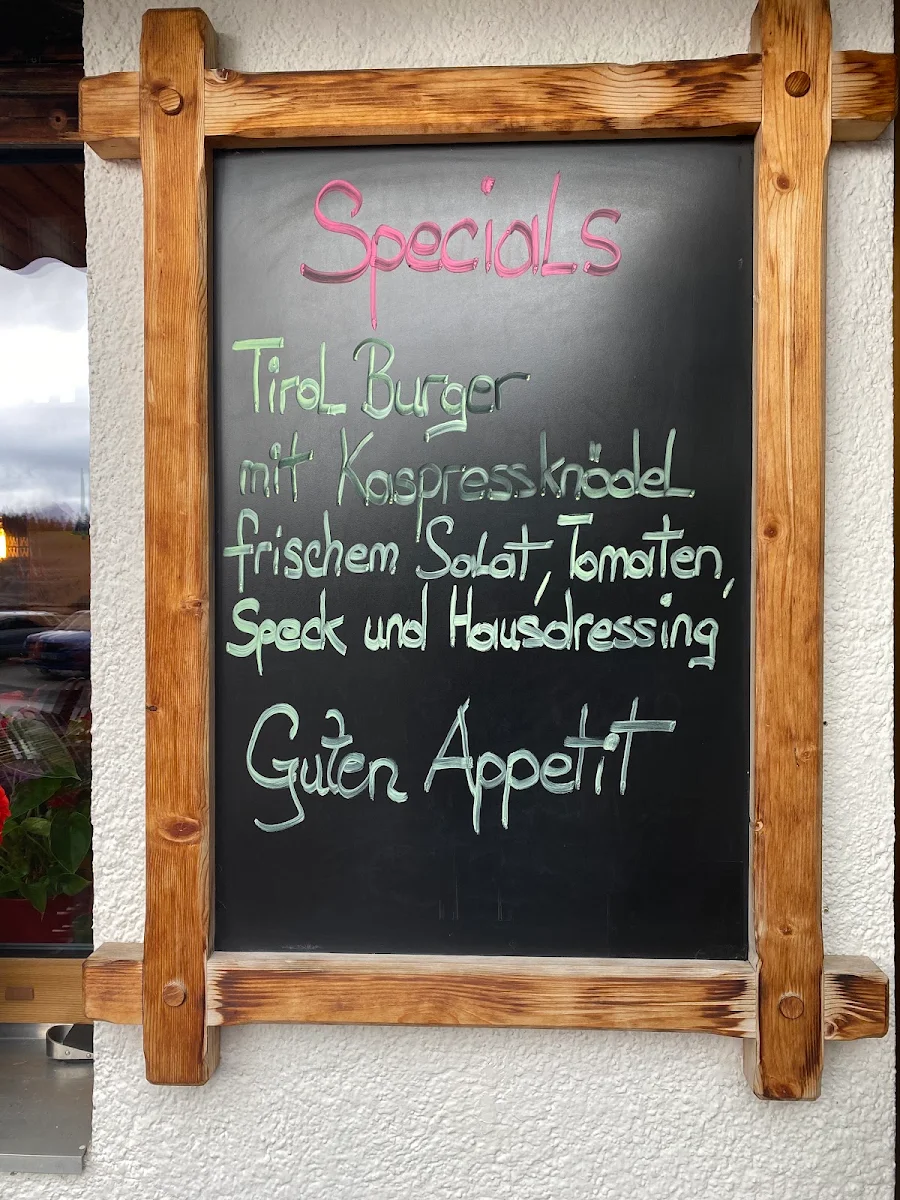 Specials
Tirol Burger
mit Kaspressknödel
frischem Salat, Tomaten,
Speck und Hausdressing
Guten Appetit